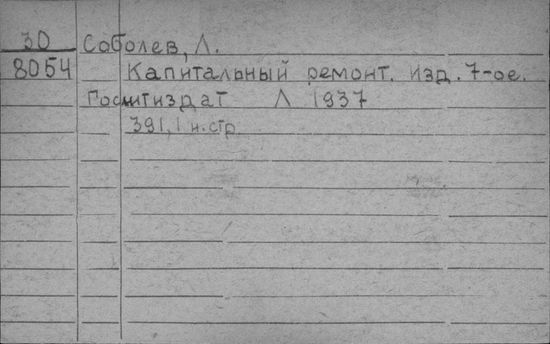 30 Соболев, Л.
8054 Капитальный ремонт. Изд. 7-ое.
Гослитиздат Л 1937
391, 1 н.стр